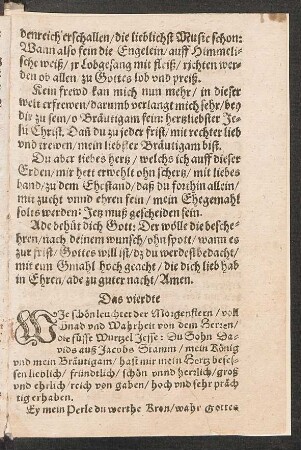 denreich erschallen / die lieblichst Music schon:
Wann also fein die Engelein / auff Himmeli-
sche weiß / jr Lobgesang mit fleiß / richten wer-
den ob allen zu Gottes lob vnd preiß.
Kein frewd kan mich nun mehr / in dieser
welt erfrewen / darumb verlangt mich sehr / bey
dir zu sein / o Bräutigam fein: hertzliebster Je-
su Christ. Dañ du zu jeder frist / mit rechter lieb
vnd trewen / mein liebster Bräutigam bist.
Du aber liebes hertz / welchs ich auff dieser
Erden / mir hett erwehlt ohn schertz / mit liebes
band / zu dem Ehestand / daß du forthin allein /
mit zucht vnnd ehren fein / mein Ehegemahl
solts werden: Jetz muß gescheiden sein.
Ade behüt dich Gott: Der wölle die besche-
hren / nach deinem wunsch / ohn spott / wann es
zur frist / Gottes will ist / dz du werdest bedacht /
mit eim Gmahl hoch geacht / die dich lieb hab
in Ehren / ade zu guter nacht / Amen.
Das vierdte
WJe schön leuchtet der Morgenstern / voll
Gnad vnd Wahrheit von dem Herren /
die süsse Wurtzel Jesse: Du Sohn Da-
vids auß Jacobs Stamm / mein König
vnd mein Bräutigam / hast mir mein Hertz besef-
sen lieblich / fründtlich / schön vnnd herrlich / groß
vnd ehrlich / reich von gaben / hoch vnd sehr präch
tig erhaben.
Ey mein Perle du werthe Kron / wahr Gottes